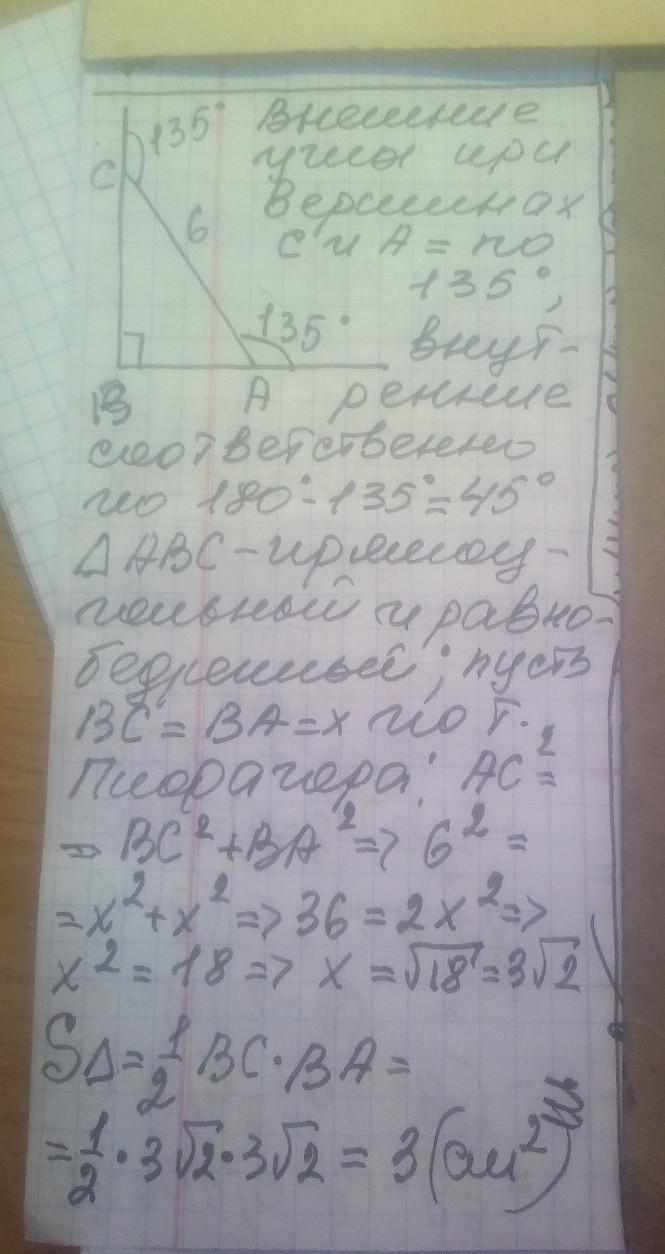 135° Внешние
C углы при
6 вершинах
C и A = по
135°,
135° внут-
B A ренние
соответственно
по 180°-135°=45°
△ABC-прямоу-
гольный и равно-
бедренный; пусть
BC = BA = x по т.
Пифагора: AC²=
= BC²+BA² => 6² =
= x²+x² => 36 = 2x² =>
x² = 18 => x = √18 = 3√2
S△ = 1/2 BC·BA =
= 1/2 · 3√2 · 3√2 = 3 (см²)